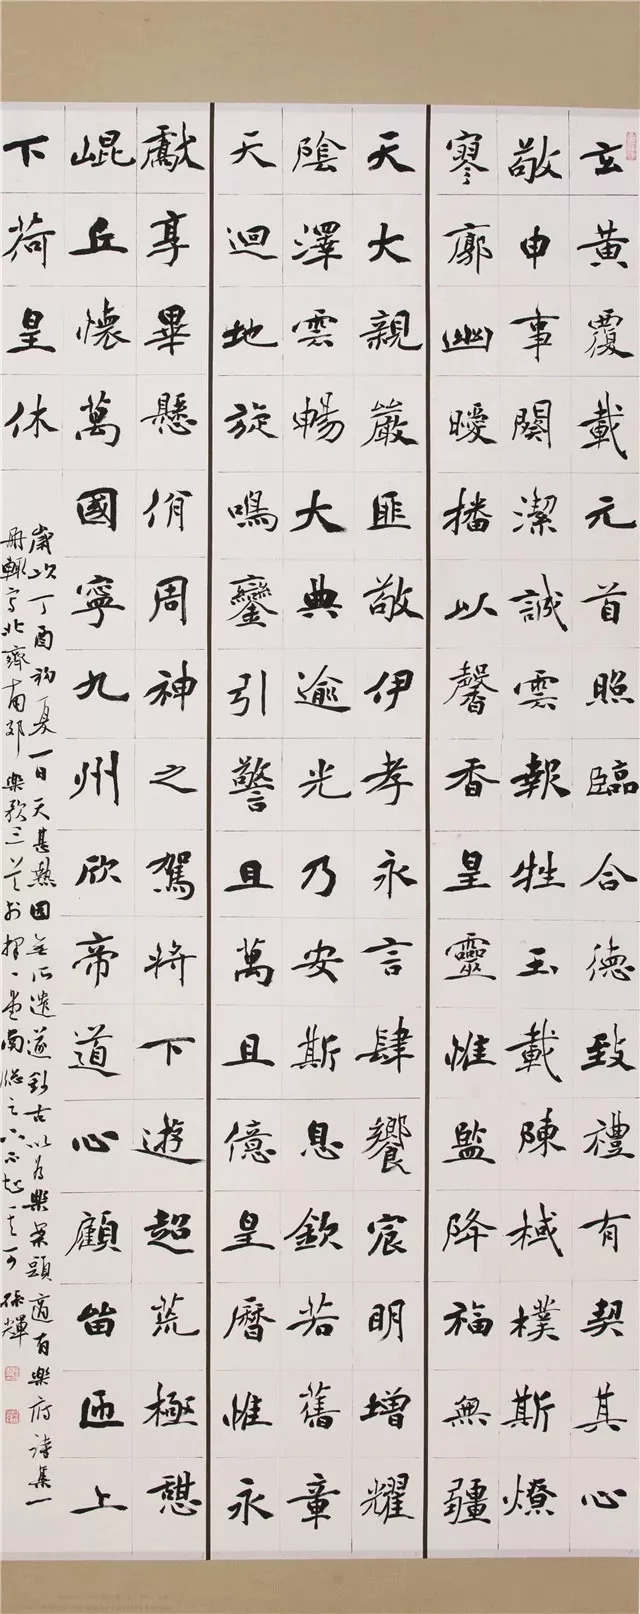 玄黃覆載元首照臨合德致禮有契其心
敬申事闋潔誠雲報牲玉載陳棫樸斯燎
寥廓幽曖播以馨香皇靈惟監降福無疆
天大親嚴匪敬伊孝永言肆饗宸明增耀
陰澤雲暢大典逾光乃安斯息欽若舊章
天迴地旋鳴鑾引警且萬且億皇曆惟永
獻享畢懸佾周神之駕將下遊超荒極憩
崐丘懷萬國寧九州欣帝道心顧留匝上
下荷皇休
歲次丁酉初夏一日天甚熱因無所遣遂鈔古以為樂案頭適有樂府詩集一
冊輒寫北齊南郊樂歌三首於擇一堂南牕之下 孫輝